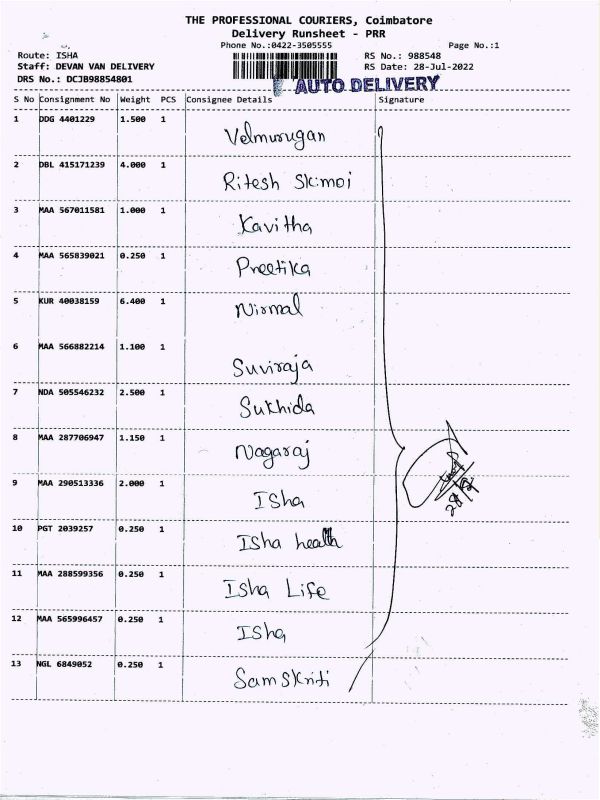 THE PROFESSIONAL COURIERS, Coimbatore
Delivery Runsheet - PRR
Phone No.:0422-3505555 Page No.:1
Route: ISHA RS No.: 988548
Staff: DEVAN VAN DELIVERY RS Date: 28-Jul-2022
DRS No.: DCJB98854801 AUTO DELIVERY
S No Consignment No Weight PCS Consignee Details Signature
1 DDG 4401229 1.500 1 Velmurugan
2 DBL 415171239 4.000 1 Ritesh
3 MAA 567011581 1.000 1 Kavitha
4 MAA 565839021 0.250 1 Preetika
5 KUR 40038159 6.400 1 Nirmal
6 MAA 566882214 1.100 1 Suviraja
7 NDA 505546232 2.500 1 Sukhida
8 MAA 287706947 1.150 1 Nagaraj
9 MAA 290513336 2.000 1 Isha
10 PGT 2039257 0.250 1 Isha health
11 MAA 288599356 0.250 1 Isha Life
12 MAA 565996457 0.250 1 Isha
13 NGL 6849052 0.250 1 Samskriti